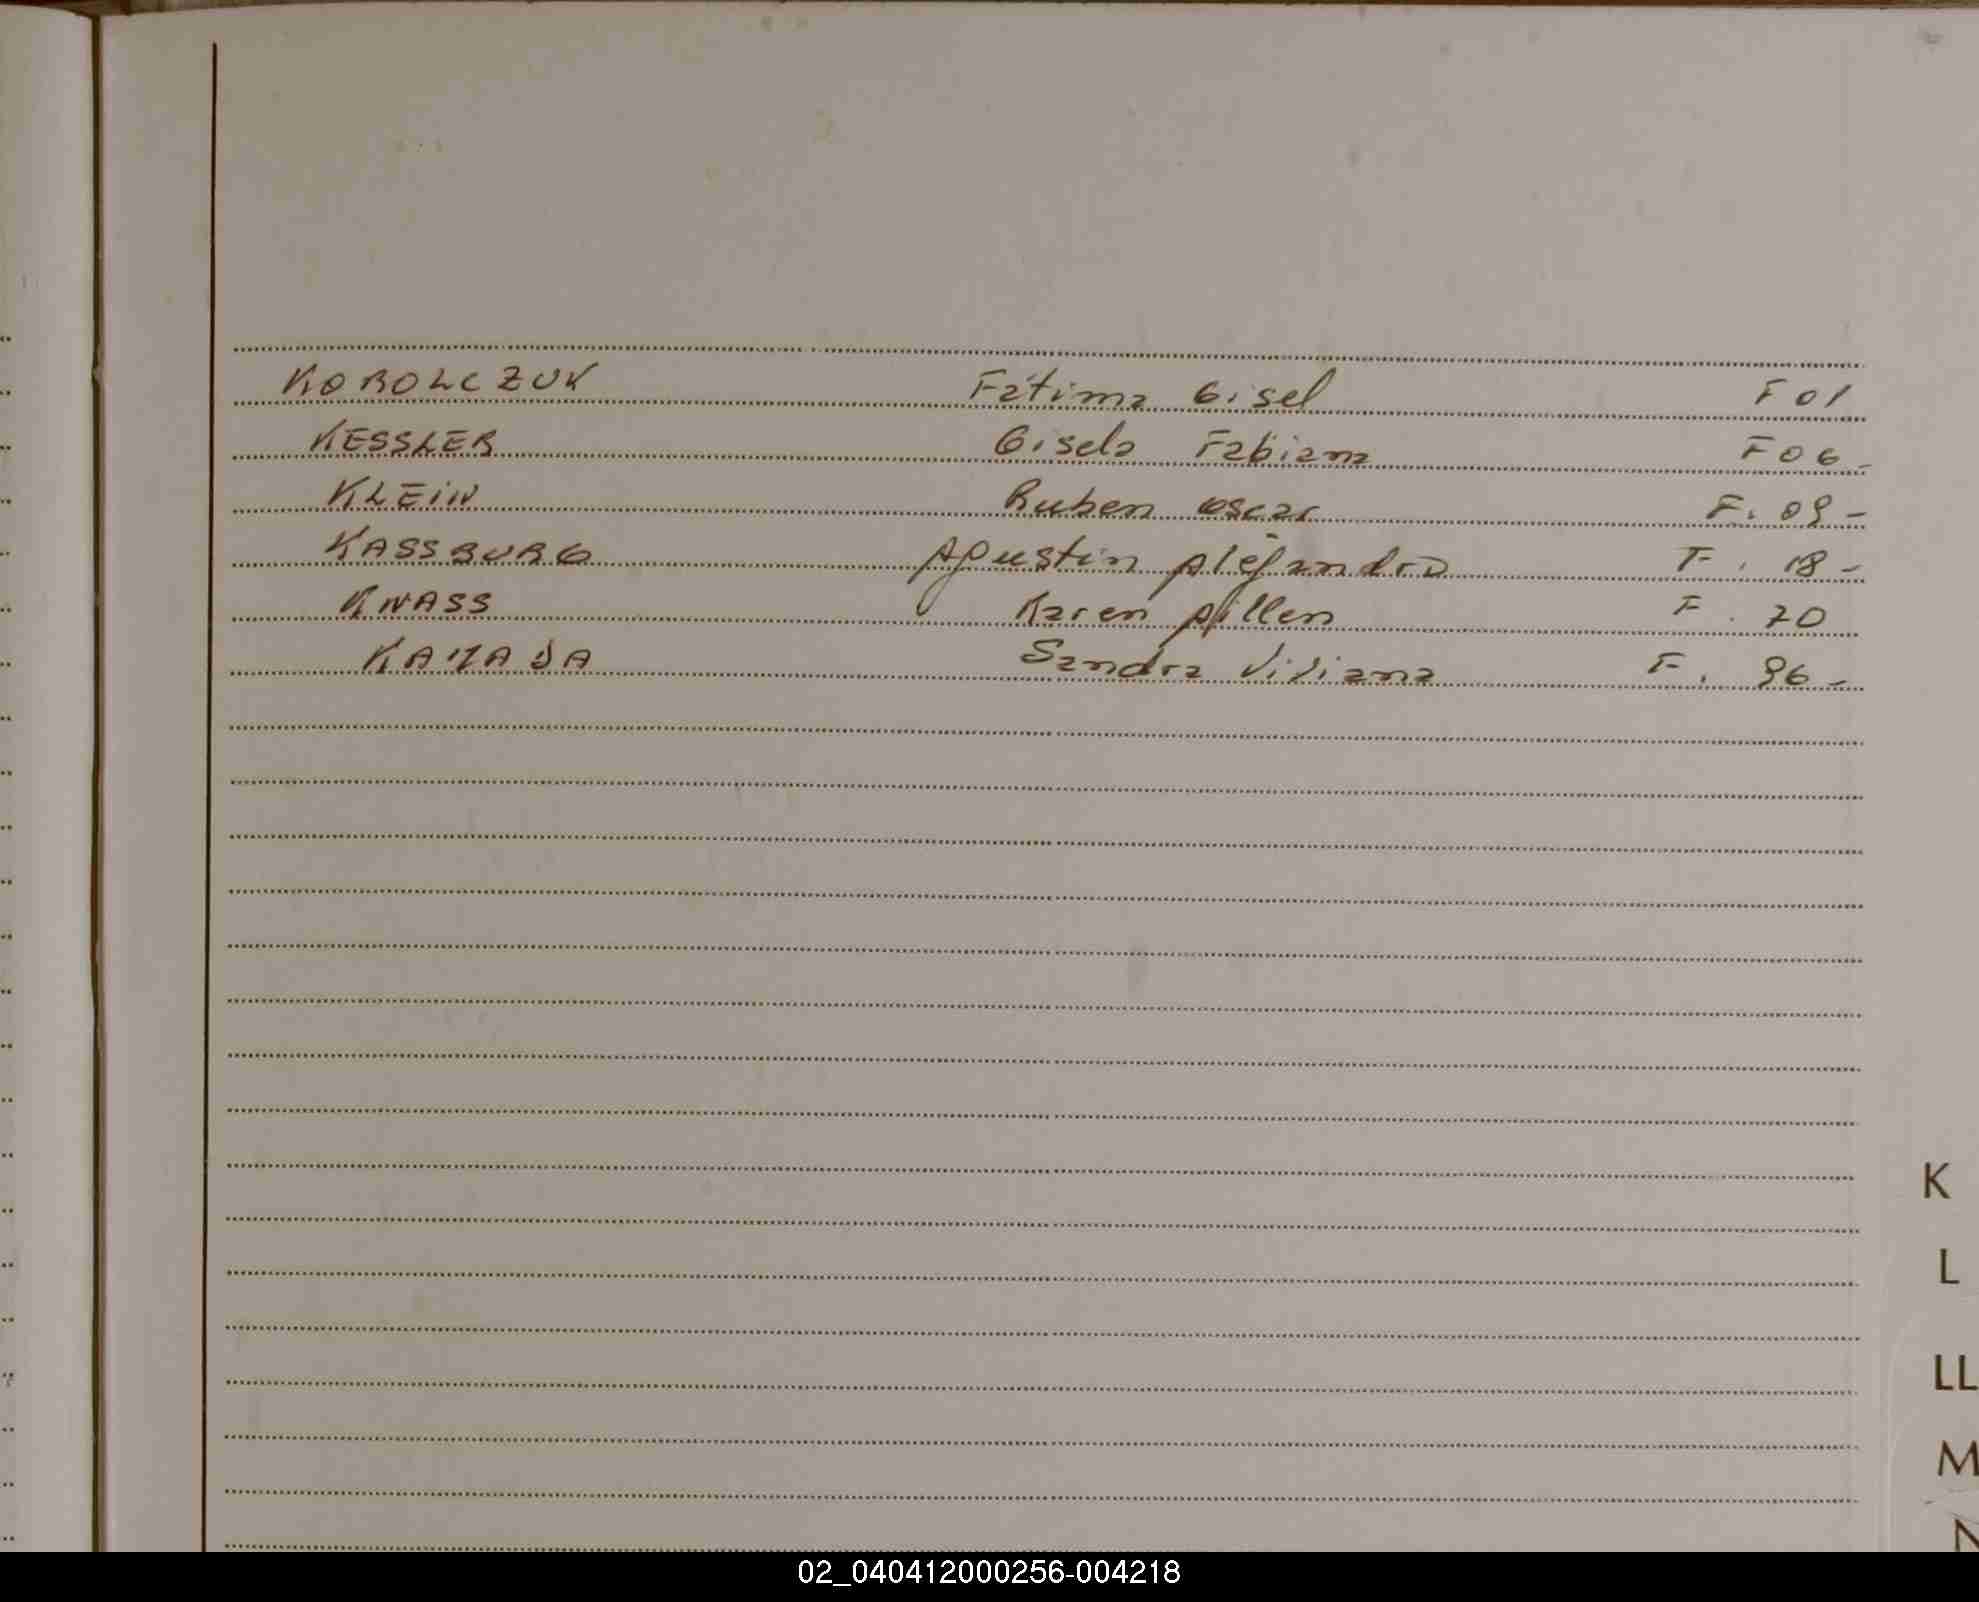 KOROLCZUK Fátima Gisel F 01
KESSLER Gisela Fabiana F 06-
KLEIN Ruben Oscar F. 09-
KASSBURG Agustin Alejandro F. 18-
KNASS Karen Aillen F. 20
Sandra Viviana F. 96-
K
L
LL
M
N
02_040412000256-004218